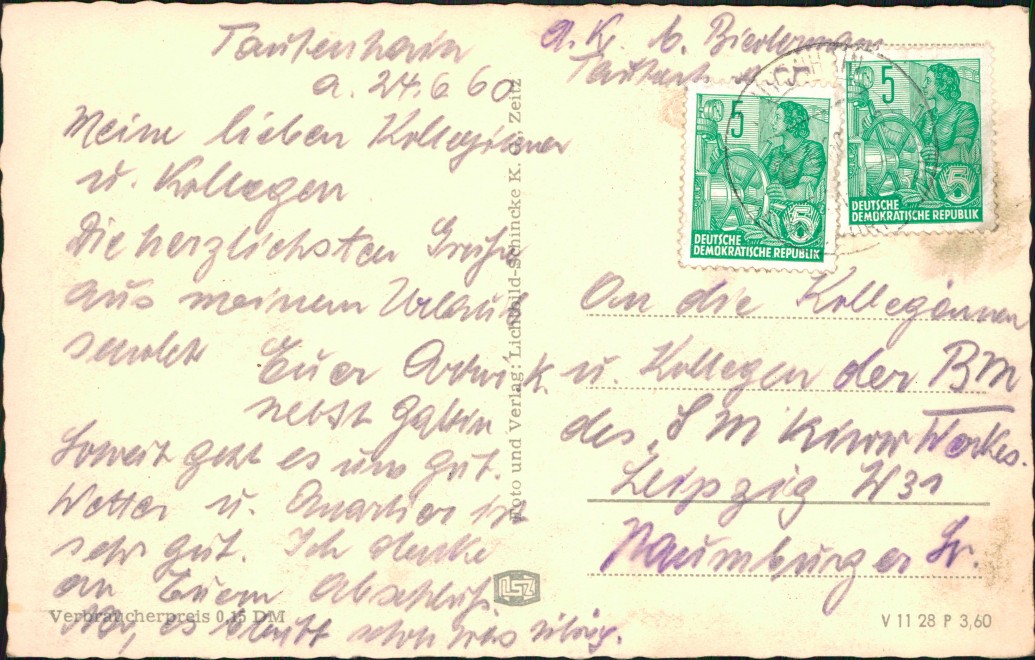 Tautenhain
d. 24.6.60
Meine lieben Kolleginnen
u. Kollegen
Die herzlichsten Grüße
aus meinem Urlaub
sendet
Euer K.
nebst Gattin
Soweit geht es uns gut.
Wetter u. Quartier
sehr gut. Ich denke
an Euern Abschluß.
es bleibt schon was übrig.
Verbraucherpreis 0,15 DM
Foto und Verlag: Lichtbild-Schincke K. G., Zeitz
LSZ
A. K. b. Biedermann
5
DEUTSCHE
DEMOKRATISCHE REPUBLIK
5
5
DEUTSCHE
DEMOKRATISCHE REPUBLIK
5
An die Kolleginnen
u. Kollegen der BM
des Werkes.
Leipzig W31
Naumburger Str.
V 11 28 P 3,60